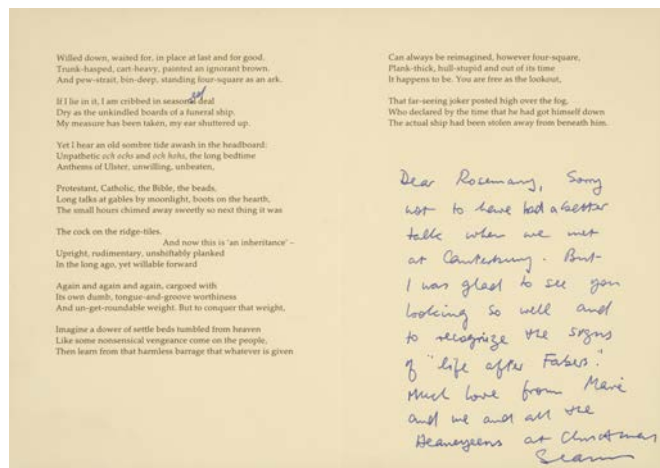 Willed down, waited for, in place at last and for good.
Trunk-hasped, cart-heavy, painted an ignorant brown.
And pew-strait, bin-deep, standing four-square as an ark.
If I lie in it, I am cribbed in seasonal deal
ed
Dry as the unkindled boards of a funeral ship.
My measure has been taken, my ear shuttered up.
Yet I hear an old sombre tide awash in the headboard:
Unpathetic och ochs and och hohs, the long bedtime
Anthems of Ulster, unwilling, unbeaten,
Protestant, Catholic, the Bible, the beads,
Long talks at gables by moonlight, boots on the hearth,
The small hours chimed away sweetly so next thing it was
The cock on the ridge-tiles.
And now this is 'an inheritance' –
Upright, rudimentary, unshiftably planked
In the long ago, yet willable forward
Again and again and again, cargoed with
Its own dumb, tongue-and-groove worthiness
And un-get-roundable weight. But to conquer that weight,
Imagine a dower of settle beds tumbled from heaven
Like some nonsensical vengeance come on the people,
Then learn from that harmless barrage that whatever is given
Can always be reimagined, however four-square,
Plank-thick, hull-stupid and out of its time
It happens to be. You are free as the lookout,
That far-seeing joker posted high over the fog,
Who declared by the time that he had got himself down
The actual ship had been stolen away from beneath him.
Dear Rosemary, Sorry
not to have had a better
talk when we met
at Canterbury. But
I was glad to see you
looking so well and
to recognize the signs
of "life after Fabers".
Much love from Marie
and me and all the
Heaneyens at Christmas
Seamus